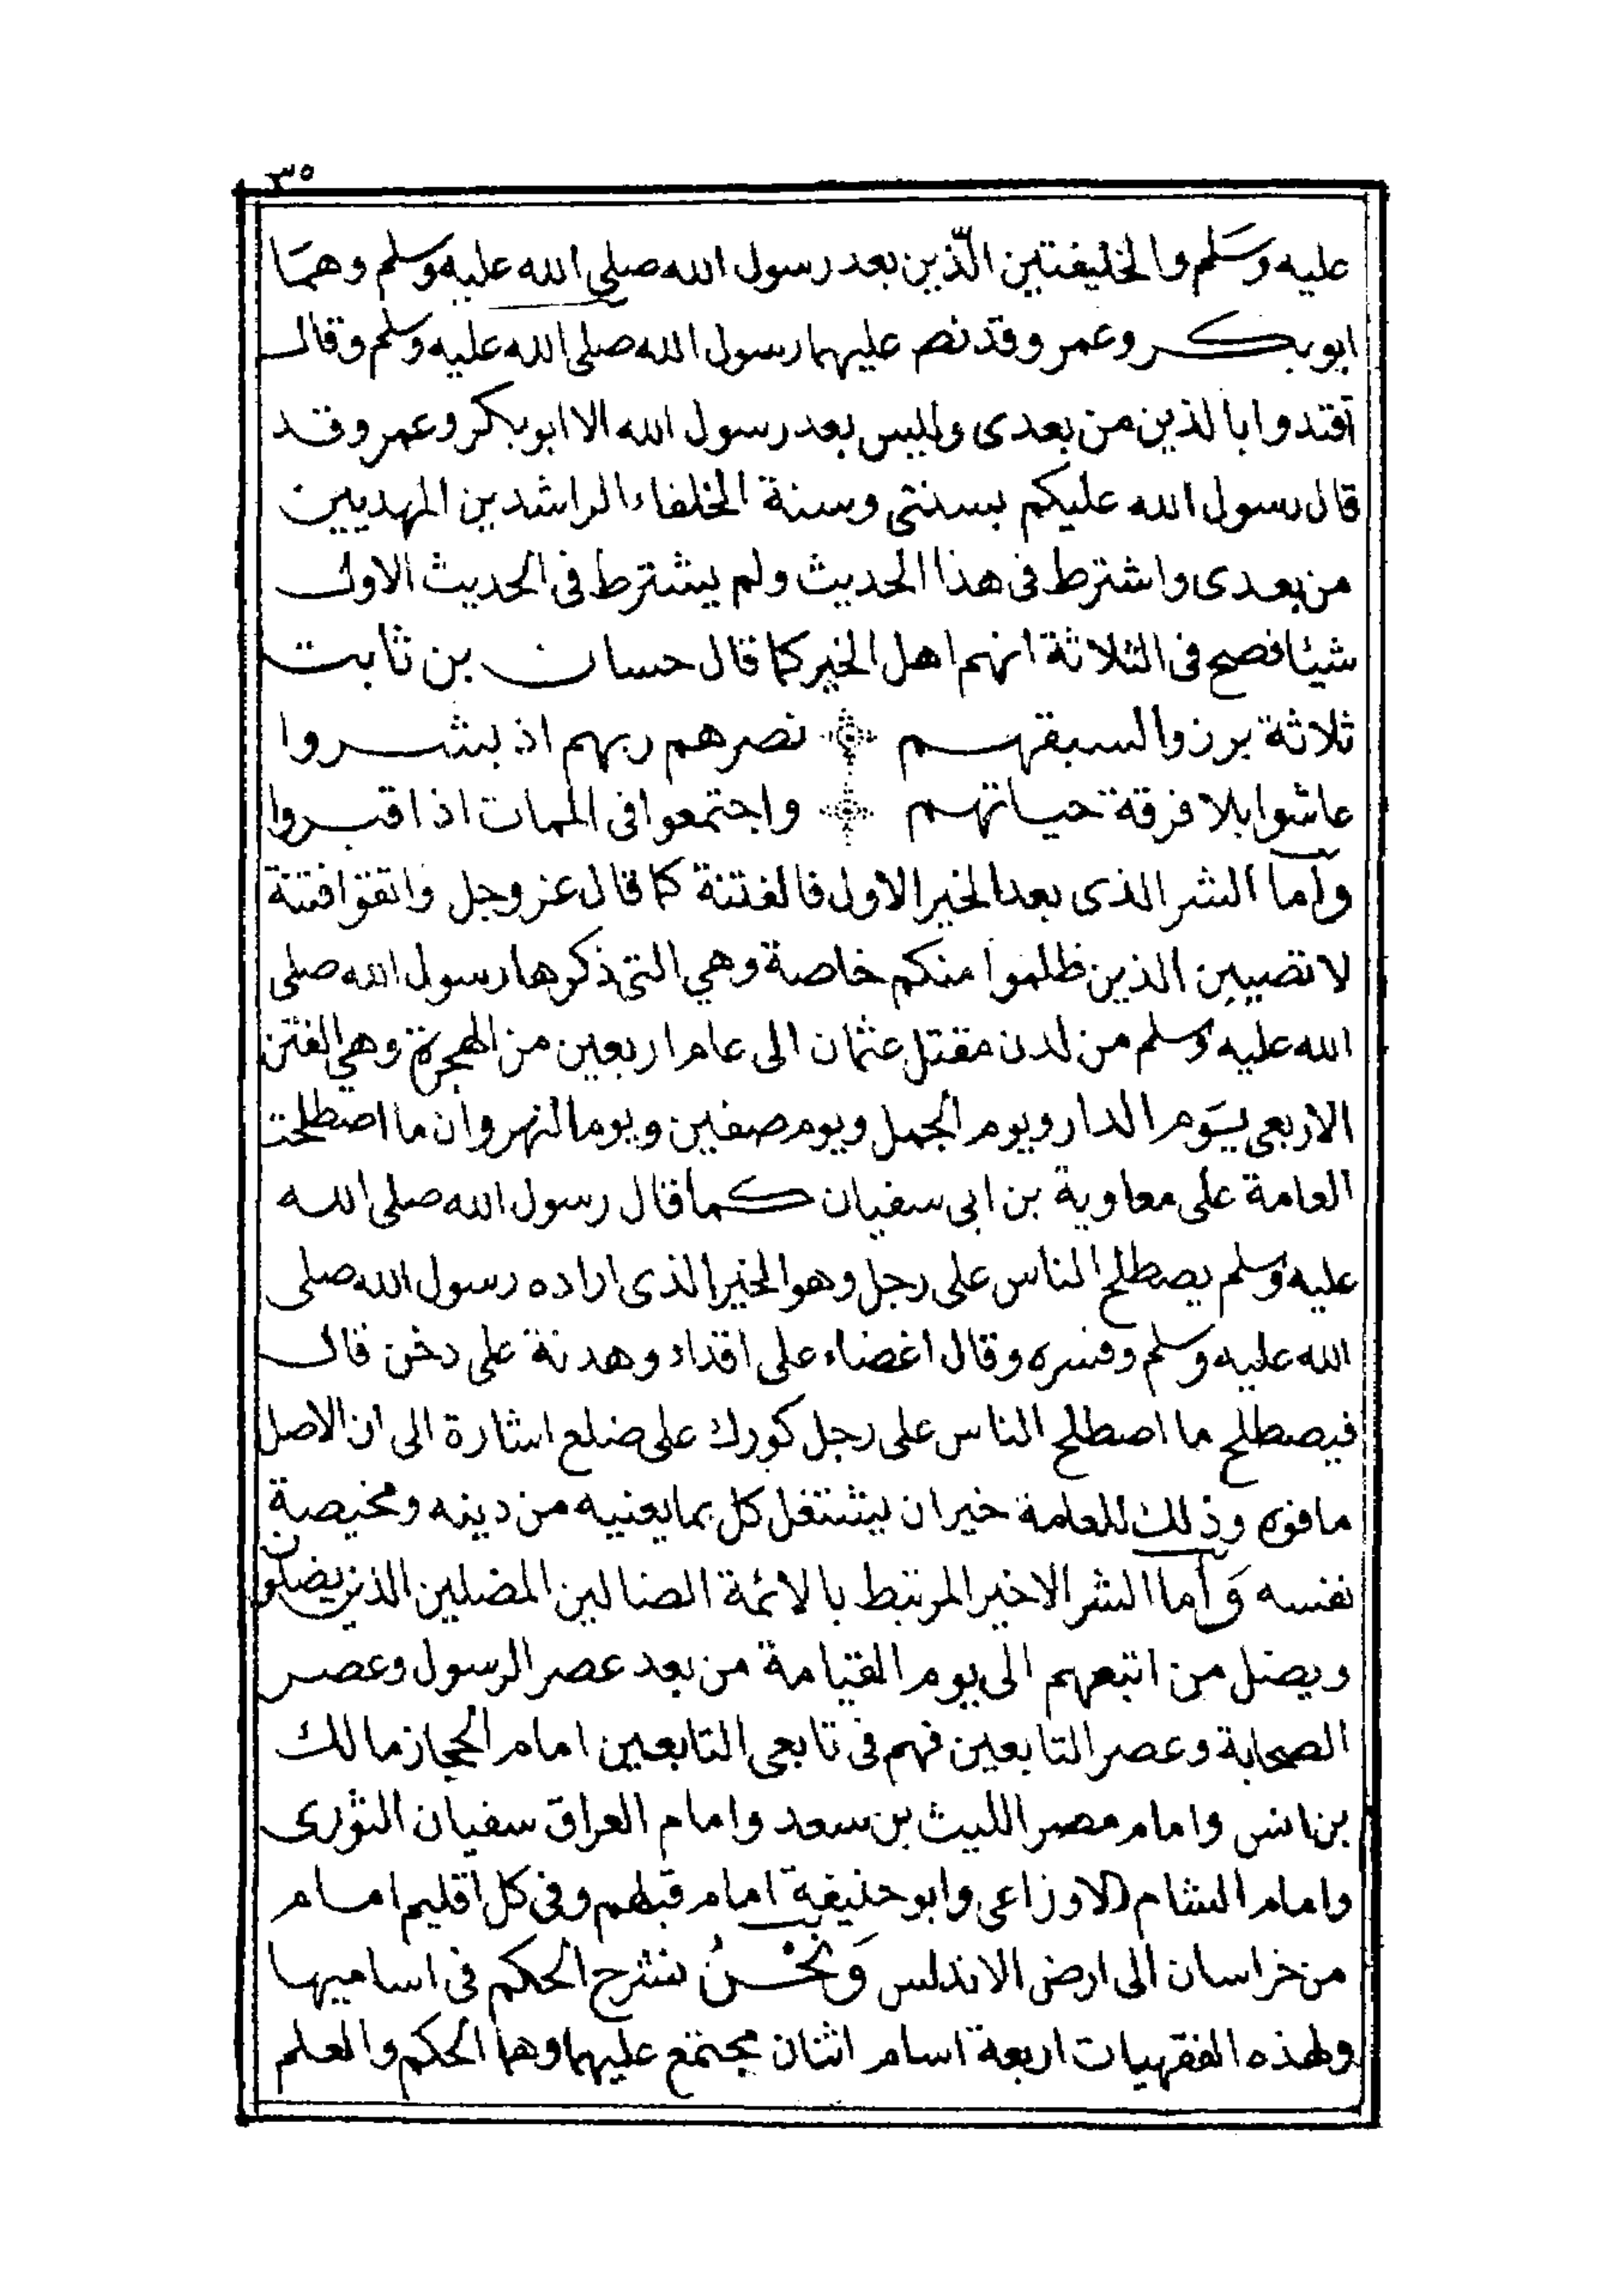 ٣٥
عليه وسَلم والخليفتين الّذين بعد رسول الله صلى الله عليه وسلم وهمَا
ابو بكر وعمر وقد نص عليهما رسول الله صلى الله عليه وسلم وقال
اقتدوا بالذين من بعدى وليس بعد رسول الله الا ابو بكر وعمر وقد
قال رسول الله عليكم بسنتى وسنة الخلفاء الراشدين المهديين
من بعدى واشترط فى هذا الحديث ولم يشترط فى الحديث الاول
شيئا فصح فى الثلاثة انهم اهل الخير كما قال حسان بن ثابت
ثلاثة برزوا لسبقهم نصرهم ربهم اذ بشروا
عاشوا بلا فرقة حياتهم واجتمعوا فى الممات اذا قبروا
وأما الشر الذى بعد الخير الاول فالفتنة كما قال عز وجل واتقوا فتنة
لا تصيبن الذين ظلموا منكم خاصة وهي التى ذكرها رسول الله صلى
الله عليه وسلم من لدن مقتل عثمان الى عام اربعين من الهجرة وهي الفتن
الاربعى يَوم الدار ويوم الجمل ويوم صفين ويوم النهروان ما اصطلحت
العامة على معاوية بن ابى سفيان كما قال رسول الله صلى الله
عليه وسلم يصطلح الناس على رجل وهو الخير الذى اراده رسول الله صلى
الله عليه وسلم وفسره وقال اغضاء على اقذاء وهدنة على دخن قال
فيصطلح ما اصطلح الناس على رجل كورك على ضلع اشارة الى ان الاصل
ما فوه وذلك للعامة خير ان يشتغل كل بما يعنيه من دينه ومخيصة
نفسه وَأما الشر الاخير المرتبط بالائمة الضالين المضلين الذين يضلون
ويضل من اتبعهم الى يوم القيامة من بعد عصر الرسول وعصر
الصحابة وعصر التابعين فهم فى تابعى التابعين امام الحجاز مالك
بن انس وامام مصر الليث بن سعد وامام العراق سفيان الثورى
وامام الشام الاوزاعى وابو حنيفة امام قبلهم وفى كل اقليم امام
من خراسان الى ارض الاندلس وَنحْنُ نشرح الحكم فى اساميها
ولهذه الفقهيات اربعة اسام اثنان مجتمع عليهما وهما الحكم والعلم